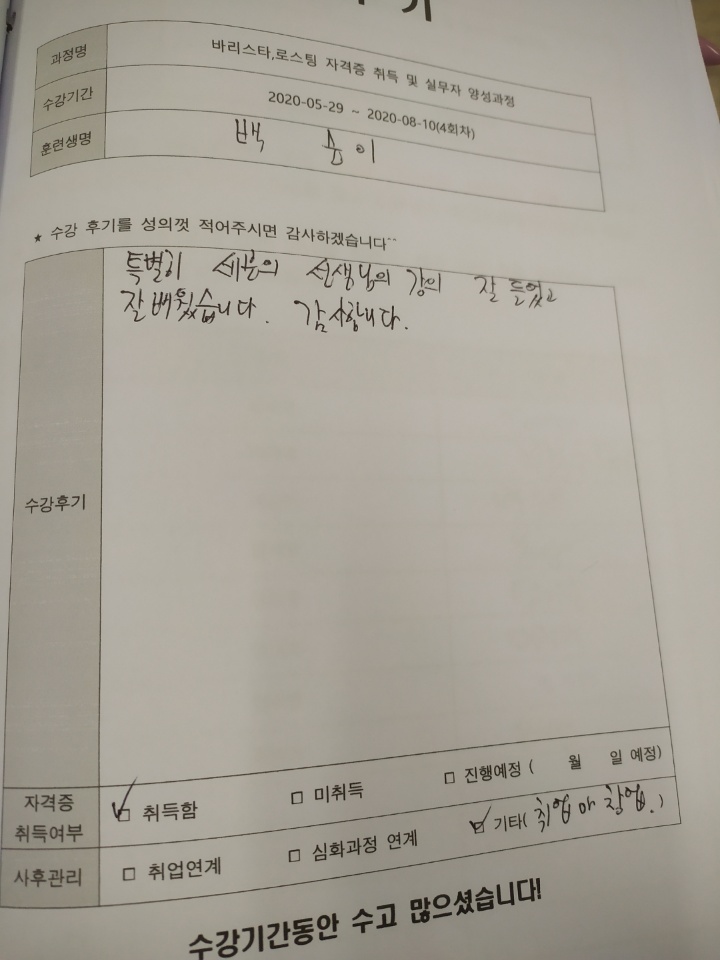 기
과정명 바리스타,로스팅 자격증 취득 및 실무자 양성과정
수강기간 2020-05-29 ~ 2020-08-10(4회차)
훈련생명 백 이
★ 수강 후기를 성의껏 적어주시면 감사하겠습니다^^
특별히 세분의 선생님의 강의 잘 들었고
잘 배웠습니다. 감사합니다.
수강후기
자격증 취득여부 ☑ 취득함 □ 미취득 □ 진행예정 ( 월 일 예정)
사후관리 □ 취업연계 □ 심화과정 연계 ☑ 기타( 취업 창업. )
수강기간동안 수고 많으셨습니다!